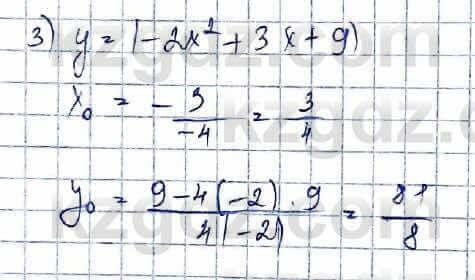 3) y = |-2x² + 3x + 9|
x₀ = - 3/-4 = 3/4
y₀ = 9-4(-2)·9 / 4(-2) = 81/8
kzgdz.com